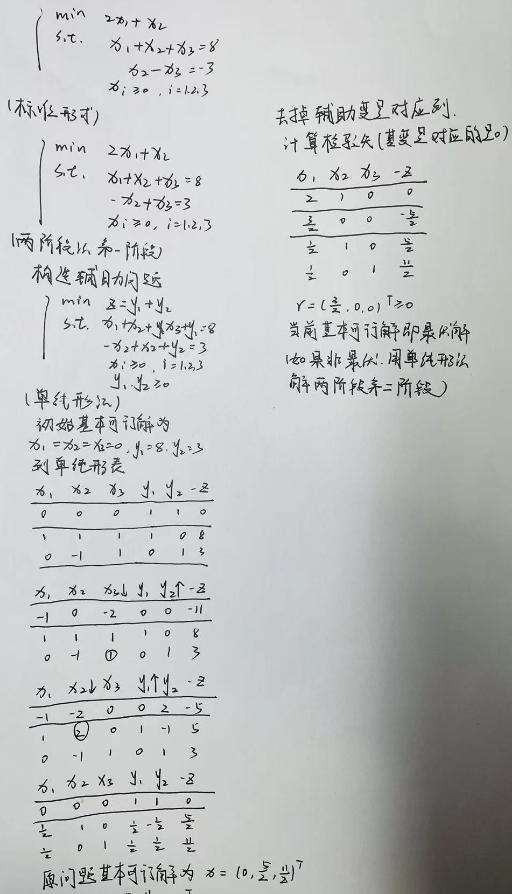 min 2x₁+x₂
s.t. x₁+x₂+x₃=8
x₂-x₃=-3
xᵢ≥0, i=1,2,3
(标准形式)
min 2x₁+x₂
s.t. x₁+x₂+x₃=8
-x₂+x₃=3
xᵢ≥0, i=1,2,3
(两阶段法第一阶段)
构造辅助问题
min z=y₁+y₂
s.t. x₁+x₂+x₃+y₁=8
-x₂+x₂+y₂=3
xᵢ≥0, i=1,2,3
y₁,y₂≥0
(单纯形法)
初始基本可行解为
x₁=x₂=x₂=0, y₁=8, y₂=3
列单纯形表
x₁ x₂ x₃ y₁ y₂ -z
0 0 0 1 1 0
1 1 1 1 0 8
0 -1 1 0 1 3
x₁ x₂ x₃↓ y₁ y₂↑ -z
-1 0 -2 0 0 -11
1 1 1 1 0 8
0 -1 ① 0 1 3
x₁ x₂↓ x₃ y₁↑ y₂ -z
-1 -2 0 0 2 -5
1 ② 0 1 -1 5
0 -1 1 0 1 3
x₁ x₂ x₃ y₁ y₂ -z
0 0 0 1 1 0
1/2 1 0 1/2 -1/2 5/2
1/2 0 1 1/2 1/2 11/2
原问题基本可行解为 x=(0, 5/2, 11/2)ᵀ
去掉辅助变量对应列.
计算检验数(基变量对应的是0)
x₁ x₂ x₃ -z
2 1 0 0
3/2 0 0 -5/2
1/2 1 0 5/2
1/2 0 1 11/2
r=(3/2, 0, 0)ᵀ≥0
当前基本可行解即最优解
(如果非最优, 用单纯形法
解两阶段第二阶段)